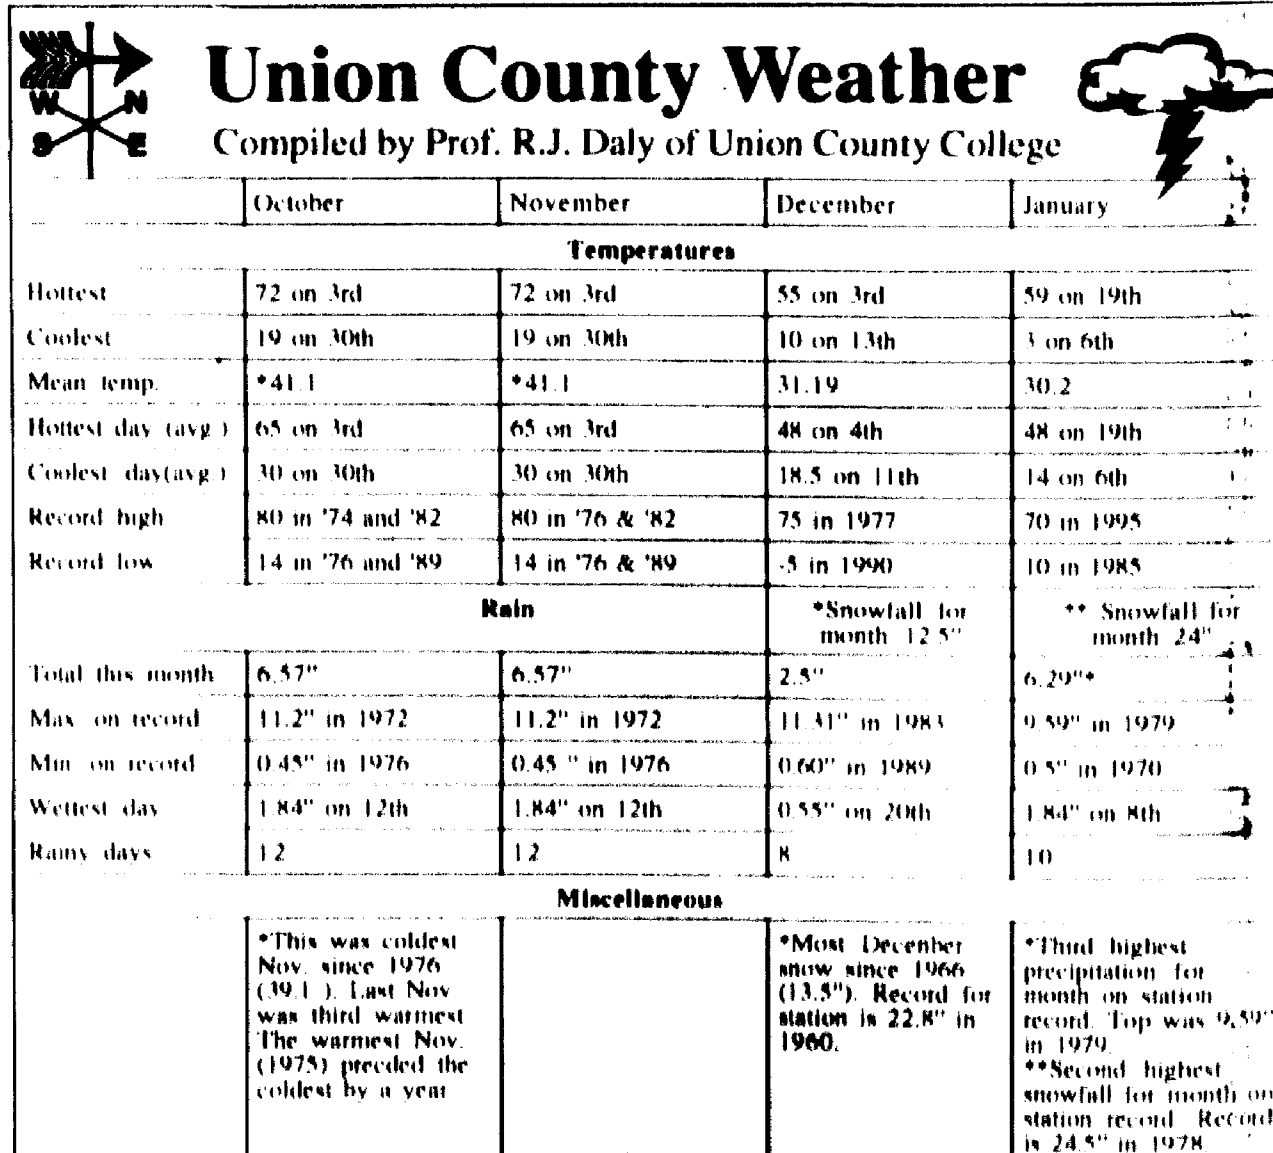 W N
S E
Union County Weather
Compiled by Prof. R.J. Daly of Union County College
October November December January
Temperatures
Hottest 72 on 3rd 72 on 3rd 55 on 3rd 59 on 19th
Coolest 19 on 30th 19 on 30th 10 on 13th 3 on 6th
Mean temp. *41.1 *41.1 31.19 30.2
Hottest day (avg.) 65 on 3rd 65 on 3rd 48 on 4th 48 on 19th
Coolest day(avg.) 30 on 30th 30 on 30th 18.5 on 11th 14 on 6th
Record high 80 in '74 and '82 80 in '76 & '82 75 in 1977 70 in 1995
Record low 14 in '76 and '89 14 in '76 & '89 -5 in 1990 10 in 1985
Rain *Snowfall for month 12.5" ** Snowfall for month 24"
Total this month 6.57" 6.57" 2.5" 6.29"*
Max on record 11.2" in 1972 11.2" in 1972 11.31" in 1983 9.59" in 1979
Min on record 0.45" in 1976 0.45 " in 1976 0.60" in 1989 0.5" in 1970
Wettest day 1.84" on 12th 1.84" on 12th 0.55" on 20th 1.84" on 8th
Rainy days 12 12 8 10
Miscellaneous
*This was coldest
Nov. since 1976
(39.1 ). Last Nov
was third warmest
The warmest Nov.
(1975) preceded the
coldest by a year
*Most December
snow since 1966
(13.5"). Record for
station is 22.8" in
1960.
*Third highest
precipitation for
month on station
record. Top was 9.59"
in 1979.
**Second highest
snowfall for month on
station record. Record
is 24.5" in 1978.